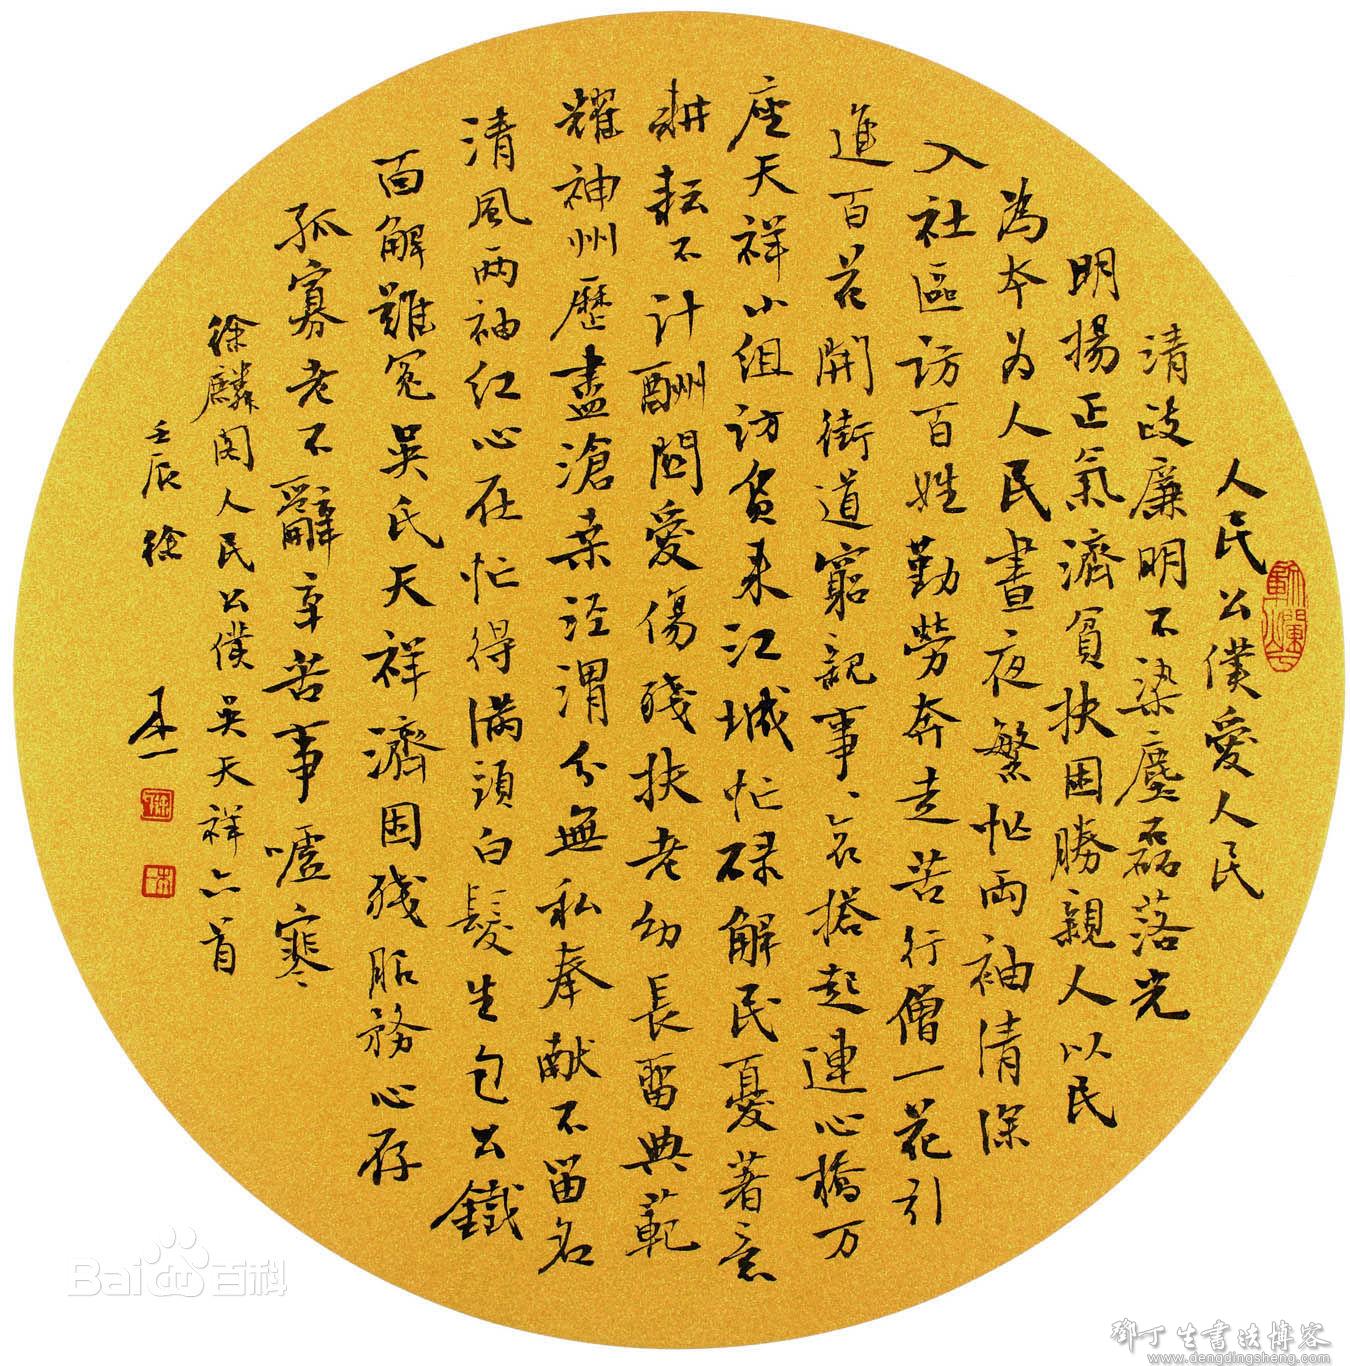 人民公僕愛人民
清政廉明不染塵磊落光
明揚正氣濟貧扶困勝親人以民
為本为人民晝夜繁忙両袖清深
入社區访百姓勤勞奔走苦行僧一花引
進百花開街道窮親事、名搭起連心橋万
座天祥小组访貧来江城忙碌解民憂著意
耕耘不计酬関愛傷殘扶老幼長留典範
耀神州歷盡滄桑泾渭分無私奉献不留名
清風两袖红心在忙得满頭白髮生包公鐵
面解難冤吳氏天祥濟困残服務心存
孤寡老不辭辛苦事嘘寒
徐麟阁人民公僕吳天祥六首
壬辰 徐
Baidu百科
鄧丁生書法博客
www.dengdingsheng.com